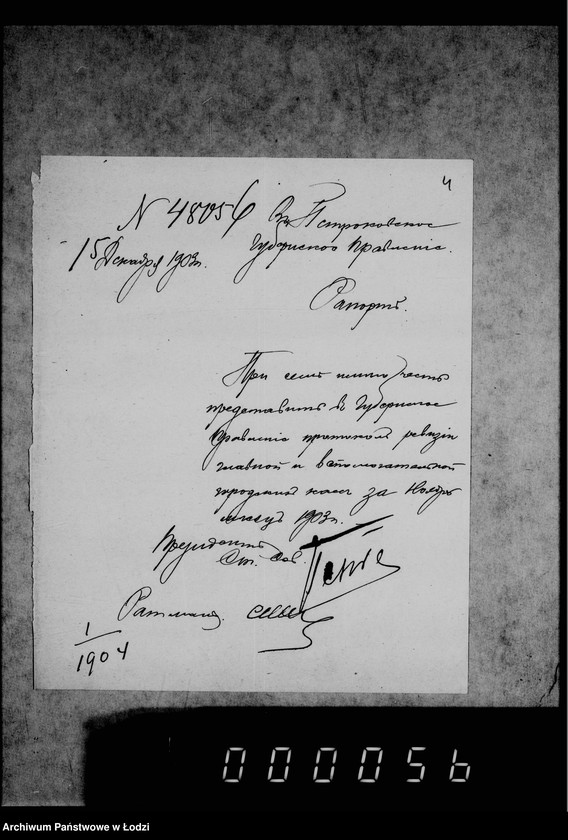 4
N 48056
15 Декабря 1903 г.
Въ Петроковское
Губернское Правленіе.
Рапортъ.
При семъ имѣю честь
представить въ Губернское
Правленіе протоколъ ревизіи
главной и вспомогательной
городской кассъ за Ноябрь
мѣсяцъ 1903 г.
Президентъ
Ст. Сов.
Ратманъ
1
1904
000056
Archiwum Państwowe w Łodzi